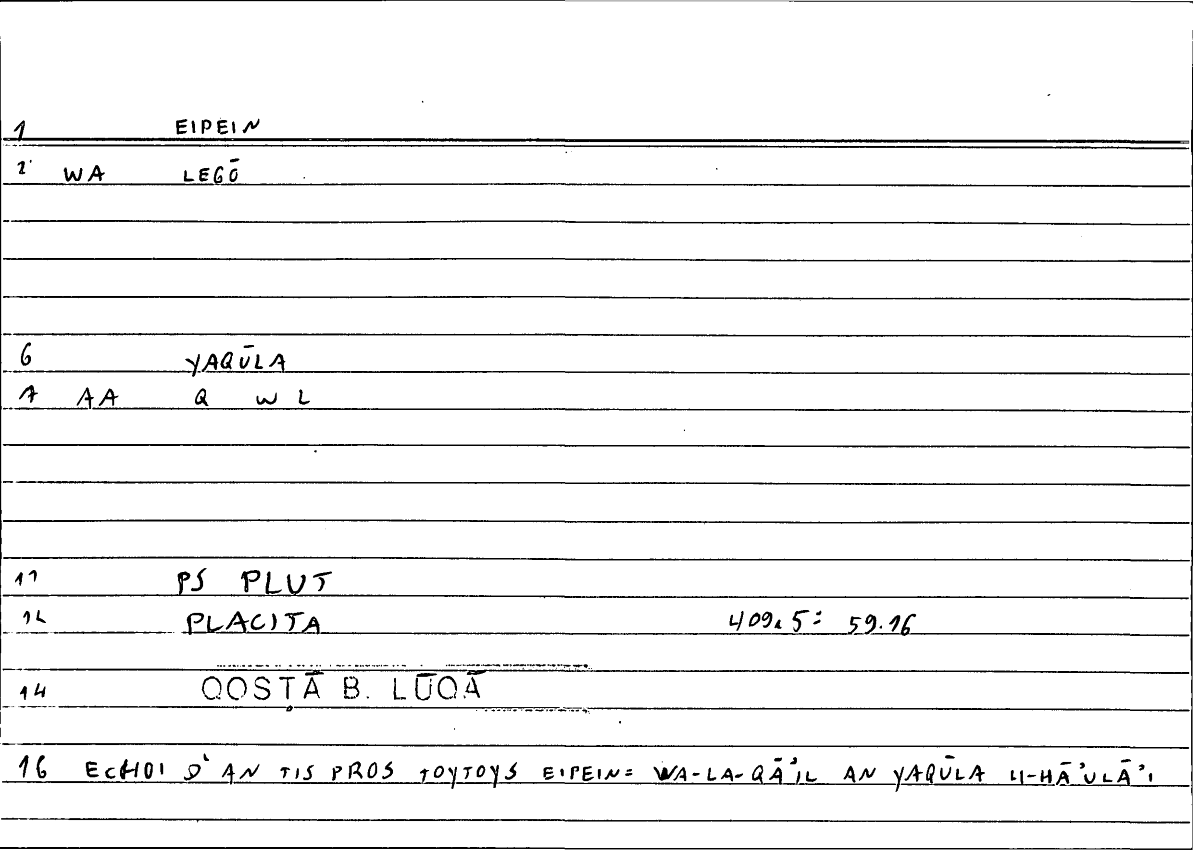 1 EIPEIN
2 WA LEGŌ
6 YAQŪLA
A AA Q W L
11 PS PLUT
12 PLACITA 409A5= 59.16
14 QOSṬĀ B. LŪQĀ
16 ECHOI D'AN TIS PROS TOYTOYS EIPEIN= WA-LA-QĀ'IL AN YAQŪLA LI-HĀ'ULĀ'I